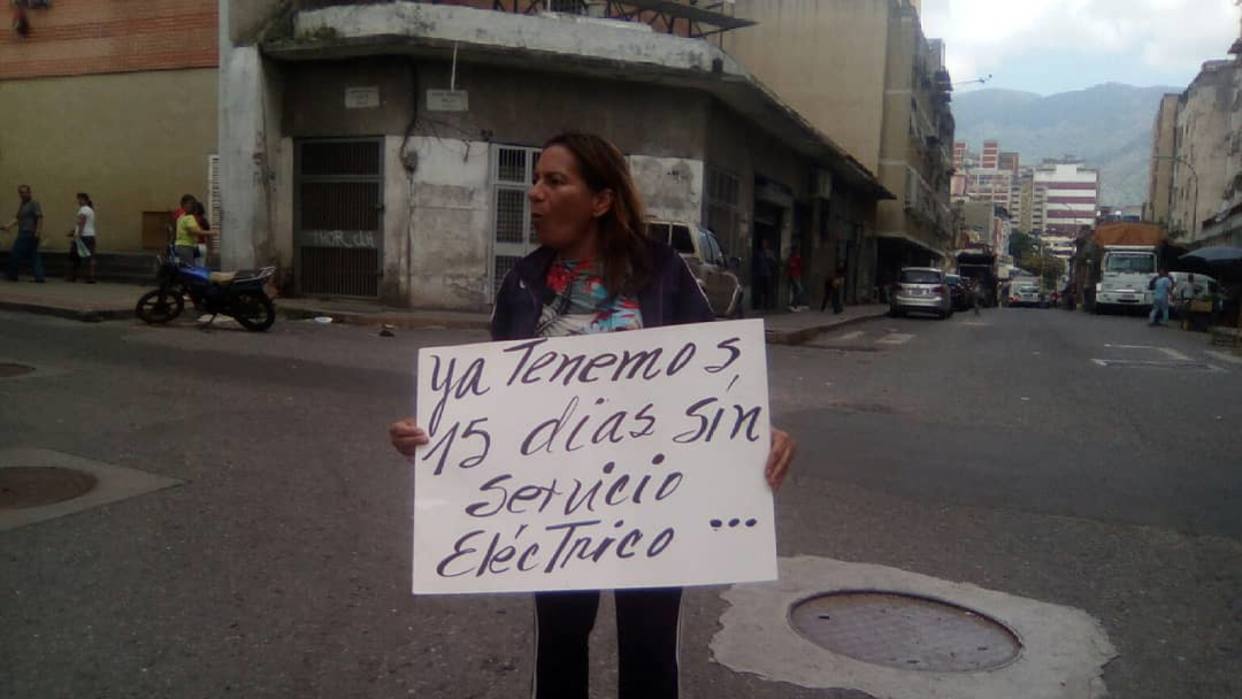 Ya Tenemos
15 días sín
servicio
Eléctrico ...